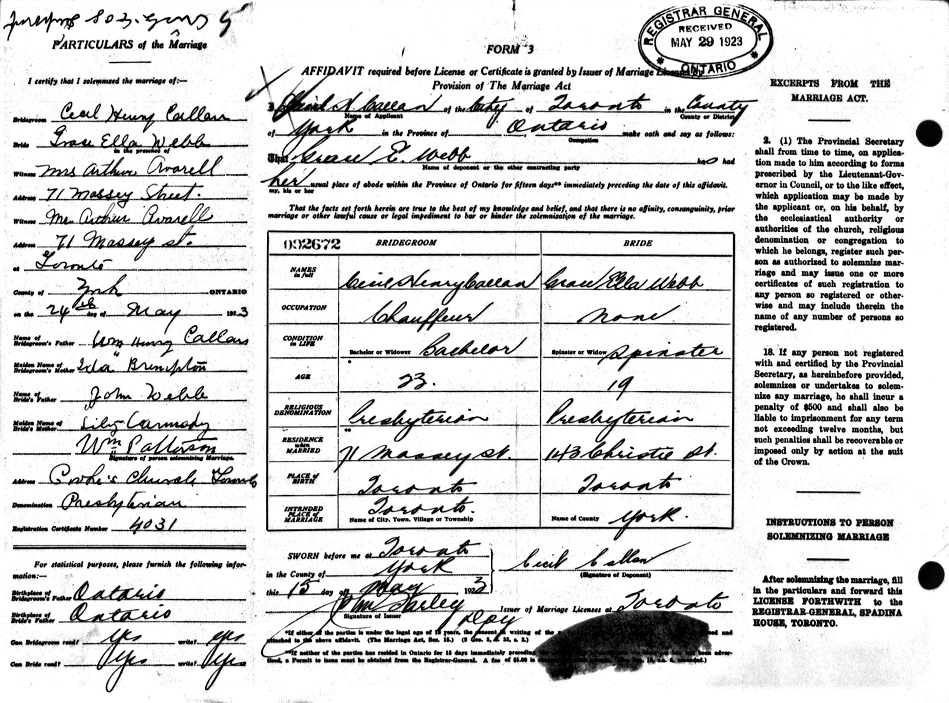 PARTICULARS of the Marriage
I certify that I solemnized the marriage of:—
Bridegroom Cecil Henry Callan
Bride Grace Ella Webb
in the presence of
Witness Mrs Arthur Avarell
Address 71 Massey Street.
Witness Mr Arthur Avarell
Address 71 Massey St.
at Toronto
County of York ONTARIO
on the 24th day of May 1923
Name of Bridegroom's Father Wm Henry Callan
Maiden Name of Bridegroom's Mother Ida Brimpton
Name of Bride's Father John Webb
Maiden Name of Bride's Mother Lily Carmady
Wm Patterson
Signature of person solemnizing Marriage.
Address Cooke's Church Toronto
Denomination Presbyterian
Registration Certificate Number 4031
For statistical purposes, please furnish the following information:—
Birthplace of Bridegroom's Father Ontario
Birthplace of Bride's Father Ontario
Can Bridegroom read? Yes write? yes
Can Bride read? Yes write? Yes
REGISTRAR GENERAL
RECEIVED
MAY 29 1923
ONTARIO
FORM 3
AFFIDAVIT required before License or Certificate is granted by Issuer of Marriage Licenses
Provision of The Marriage Act
I, Cecil H Callan of the City of Toronto in the County
Name of Applicant County or District
of York in the Province of Ontario make oath and say as follows:
Occupation
That Grace E. Webb has had
Name of deponent or the other contracting party
her usual place of abode within the Province of Ontario for fifteen days** immediately preceding the date of this affidavit.
my, his or her
That the facts set forth herein are true to the best of my knowledge and belief, and that there is no affinity, consanguinity, prior
marriage or other lawful cause or legal impediment to bar or hinder the solemnization of the marriage.
092672 BRIDEGROOM BRIDE
NAMES in full Cecil Henry Callan Grace Ella Webb
OCCUPATION Chauffeur None
CONDITION in LIFE Bachelor or Widower Bachelor Spinster or Widow Spinster
AGE 23. 19
RELIGIOUS DENOMINATION Presbyterian Presbyterian
RESIDENCE when MARRIED 71 Massey St. 143 Christie St.
PLACE of BIRTH Toronto Toronto
INTENDED PLACE of MARRIAGE Toronto. York.
Name of City, Town, Village or Township Name of County
SWORN before me at Toronto
in the County of York
this 15 day of May 1923
Cecil Callan
(Signature of Deponent)
Signature of Issuer
Issuer of Marriage Licenses at Toronto
*If either of the parties is under the legal age of 18 years, the consent in writing of the
attached to the above affidavit. (The Marriage Act, Sec. 15.)
**If neither of the parties has resided in Ontario for 15 days immediately preceding
a Permit to issue must be obtained from the Registrar-General. A fee of
EXCERPTS FROM THE
MARRIAGE ACT.
2. (1) The Provincial Secretary
shall from time to time, on applica-
tion made to him according to forms
prescribed by the Lieutenant-Gov-
ernor in Council, or to the like effect,
which application may be made by
the applicant or, on his behalf, by
the ecclesiastical authority or
authorities of the church, religious
denomination or congregation to
which he belongs, register such per-
son as authorized to solemnize mar-
riage and may issue one or more
certificates of such registration to
any person so registered or other-
wise and may include therein the
name of any number of persons so
registered.
18. If any person not registered
with and certified by the Provincial
Secretary, as hereinbefore provided,
solemnizes or undertakes to solem-
nize any marriage, he shall incur a
penalty of $500 and shall also be
liable to imprisonment for any term
not exceeding twelve months, but
such penalties shall be recoverable or
imposed only by action at the suit
of the Crown.
INSTRUCTIONS TO PERSON
SOLEMNIZING MARRIAGE
After solemnizing the marriage, fill
in the particulars and forward this
LICENSE FORTHWITH to the
REGISTRAR-GENERAL, SPADINA
HOUSE, TORONTO.